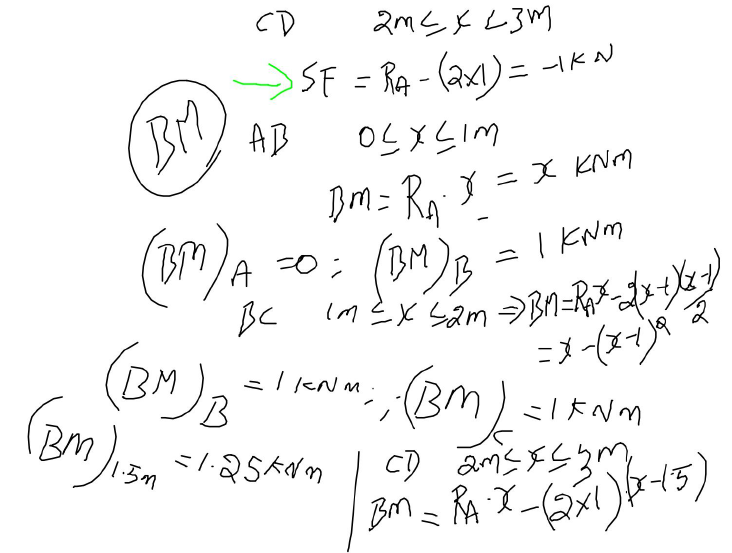 CD 2m ≤ x ≤ 3m
→ SF = RA - (2x1) = -1 KN
BM AB 0 ≤ x ≤ 1m
BM = RA · x = x KNm
(BM)A = 0 ; (BM)B = 1 KNm
BC 1m ≤ x ≤ 2m ⇒ BM = RA x - 2(x-1)(x-1)/2
= x - (x-1)²
(BM)B = 1 KNm ; ; (BM)C = 1 KNm
(BM)1.5m = 1.25 KNm
CD 2m ≤ x ≤ 3m
BM = RA · x - (2x1)(x-1.5)